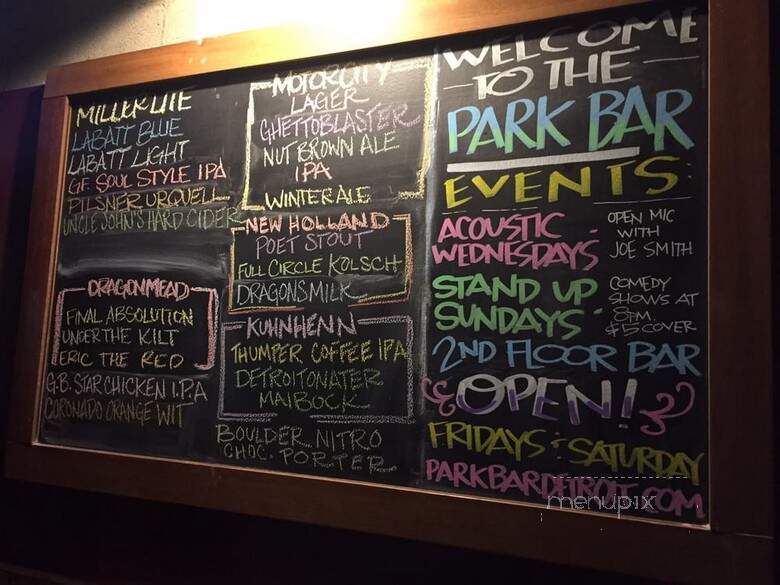 MILLER LITE
LABATT BLUE
LABATT LIGHT
G.F. SOUL STYLE IPA
PILSNER URQUELL
UNCLE JOHN'S HARD CIDER
DRAGONMEAD
FINAL ABSOLUTION
UNDER THE KILT
ERIC THE RED
G.B. STAR CHICKEN I.P.A
CORONADO ORANGE WIT
MOTOR CITY
LAGER
GHETTOBLASTER
NUT BROWN ALE
IPA
WINTER ALE
NEW HOLLAND
POET STOUT
FULL CIRCLE KOLSCH
DRAGONSMILK
KUHNHENN
THUMPER COFFEE IPA
DETROITONATER
MAIBOCK
BOULDER NITRO
CHOC. PORTER
WELCOME
TO THE
PARK BAR
EVENTS:
ACOUSTIC -
WEDNESDAYS
OPEN MIC
WITH
JOE SMITH
STAND UP -
SUNDAYS
COMEDY
SHOWS AT
8PM.
$5 COVER
2ND FLOOR BAR
OPEN!
FRIDAYS & SATURDAY
PARKBARDETROIT.COM
menupix